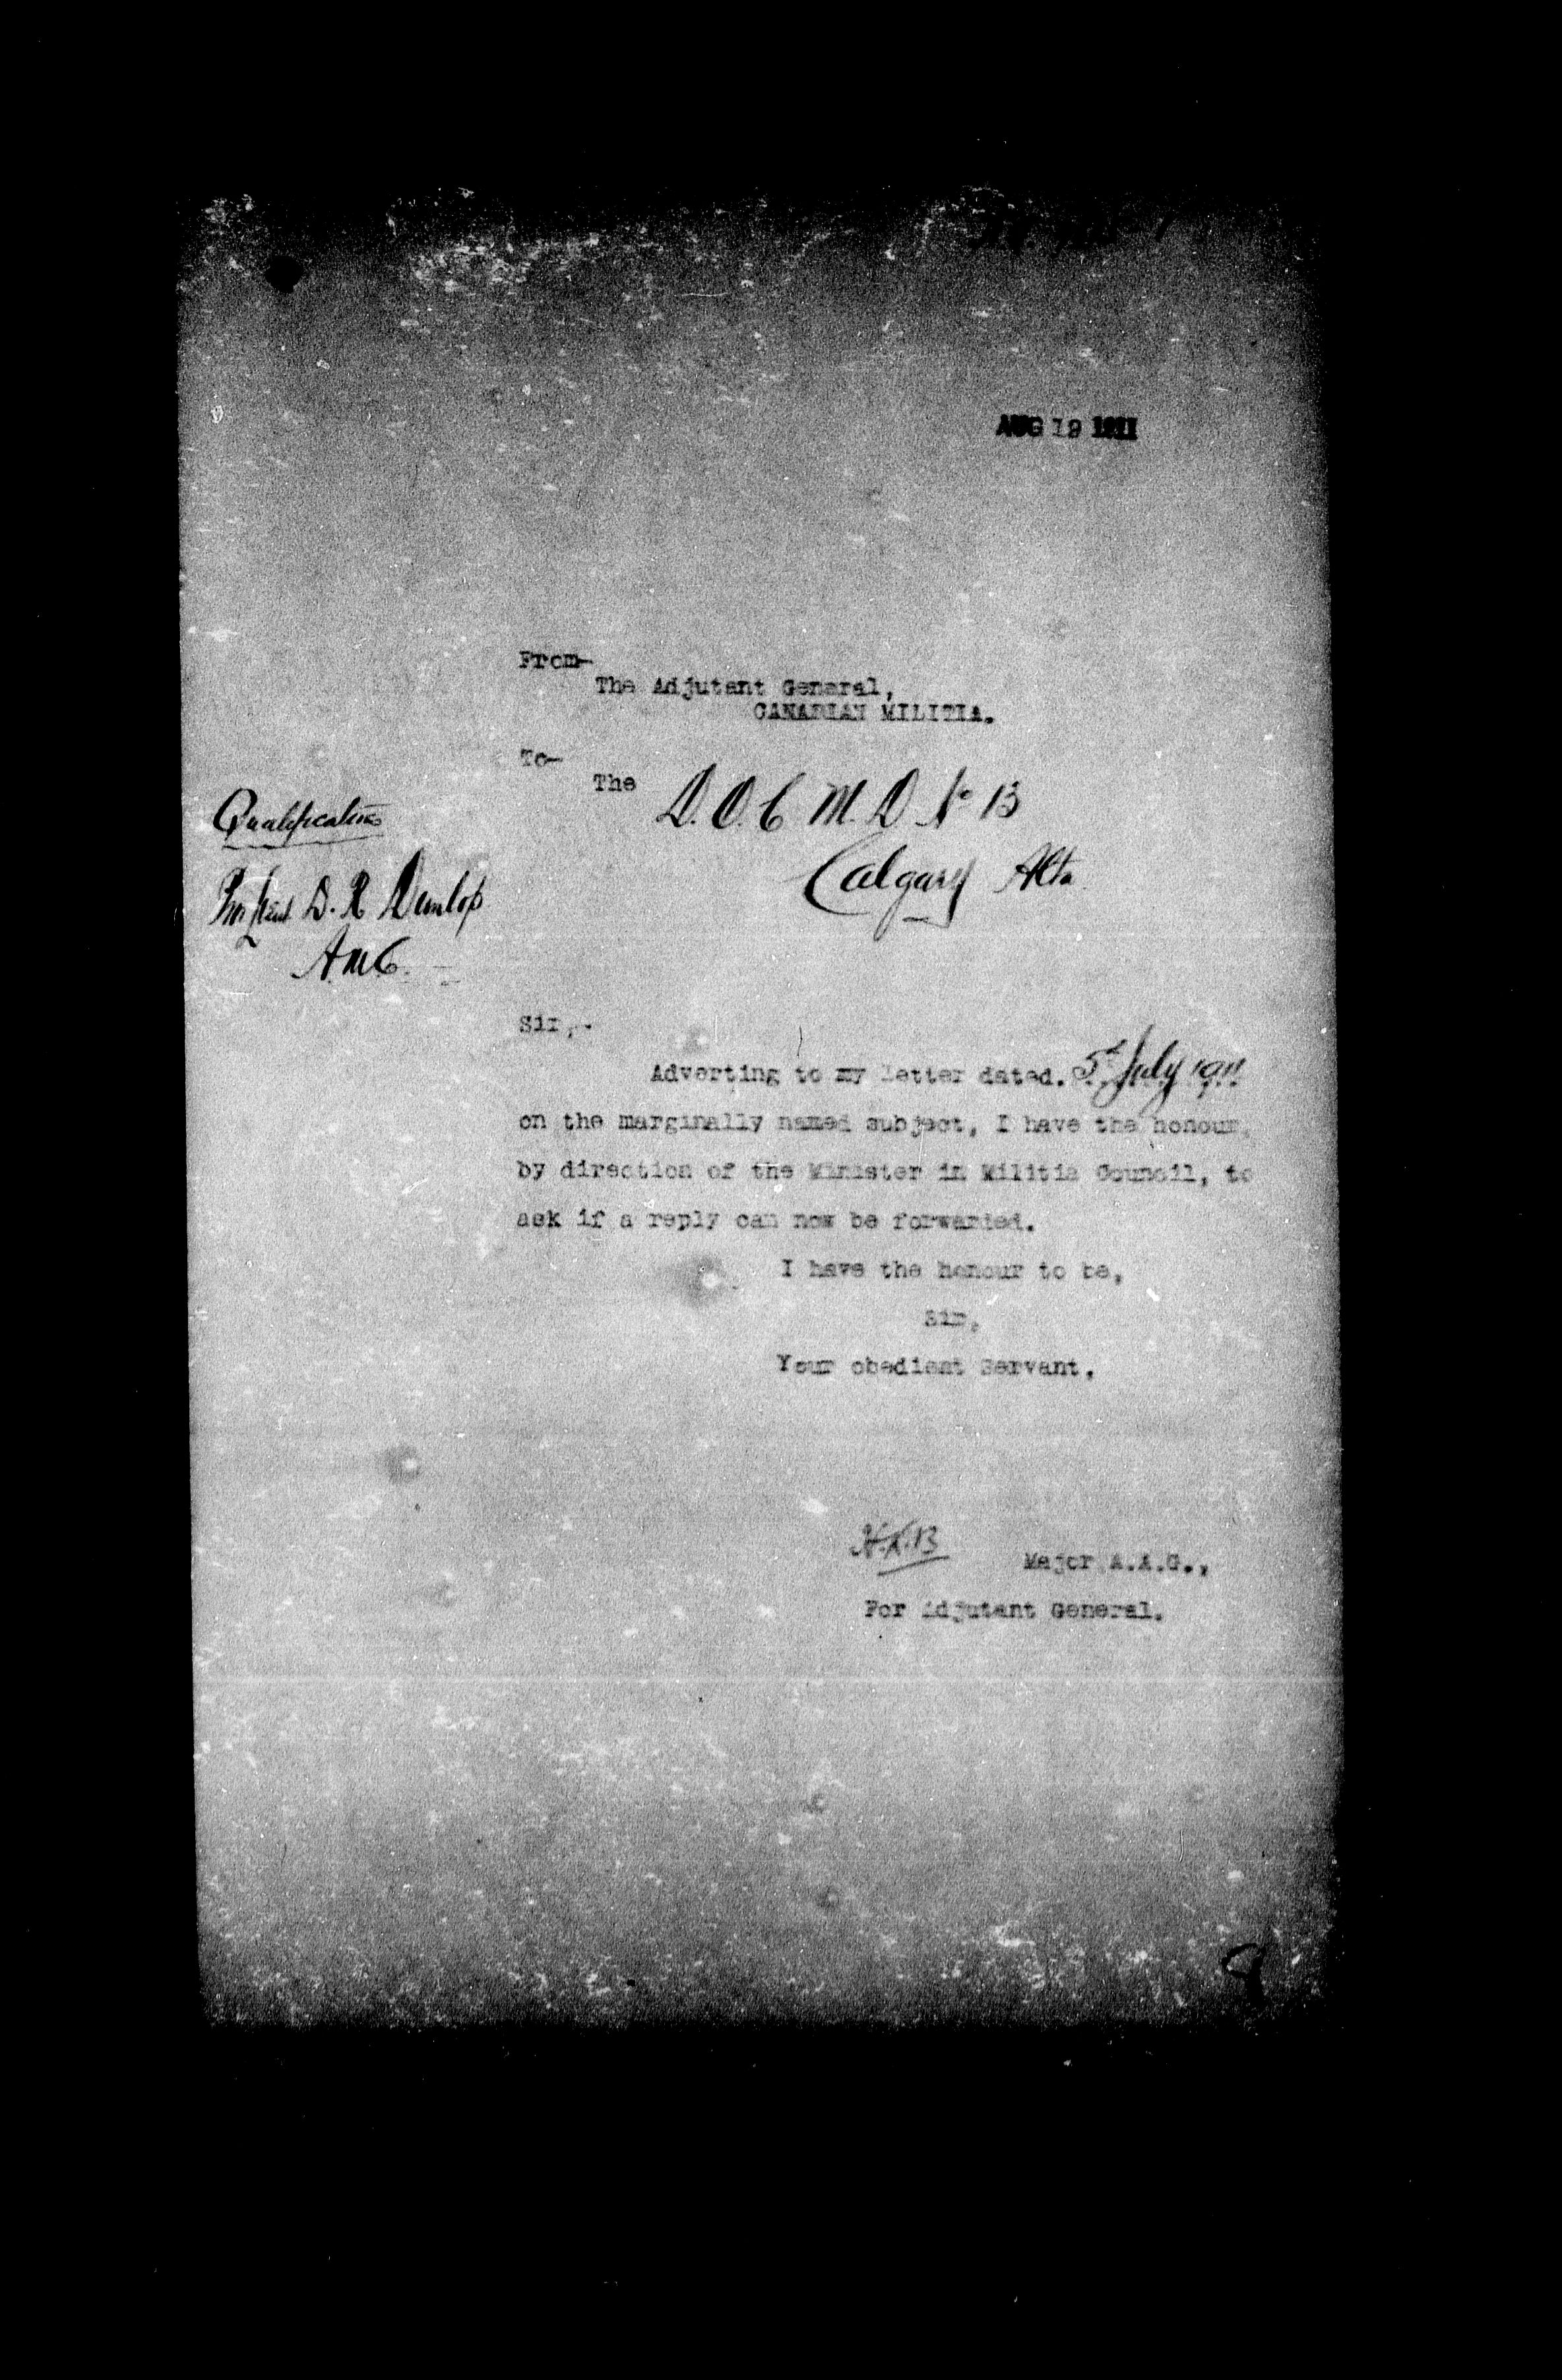 AUG 19 1911
From-
The Adjutant General,
CANADIAN MILITIA.
To-
The D.O.C M.D No 13
Calgary Alta.
Qualification
Prov Lieut D. R Dunlop
A.M.C.
Sir,-
Adverting to my letter dated. 5th July 1911
on the marginally named subject, I have the honour,
by direction of the Minister in Militia Council, to
ask if a reply can now be forwarded.
I have the honour to be,
Sir,
Your obedient Servant,
Major A.A.G.,
For Adjutant General.